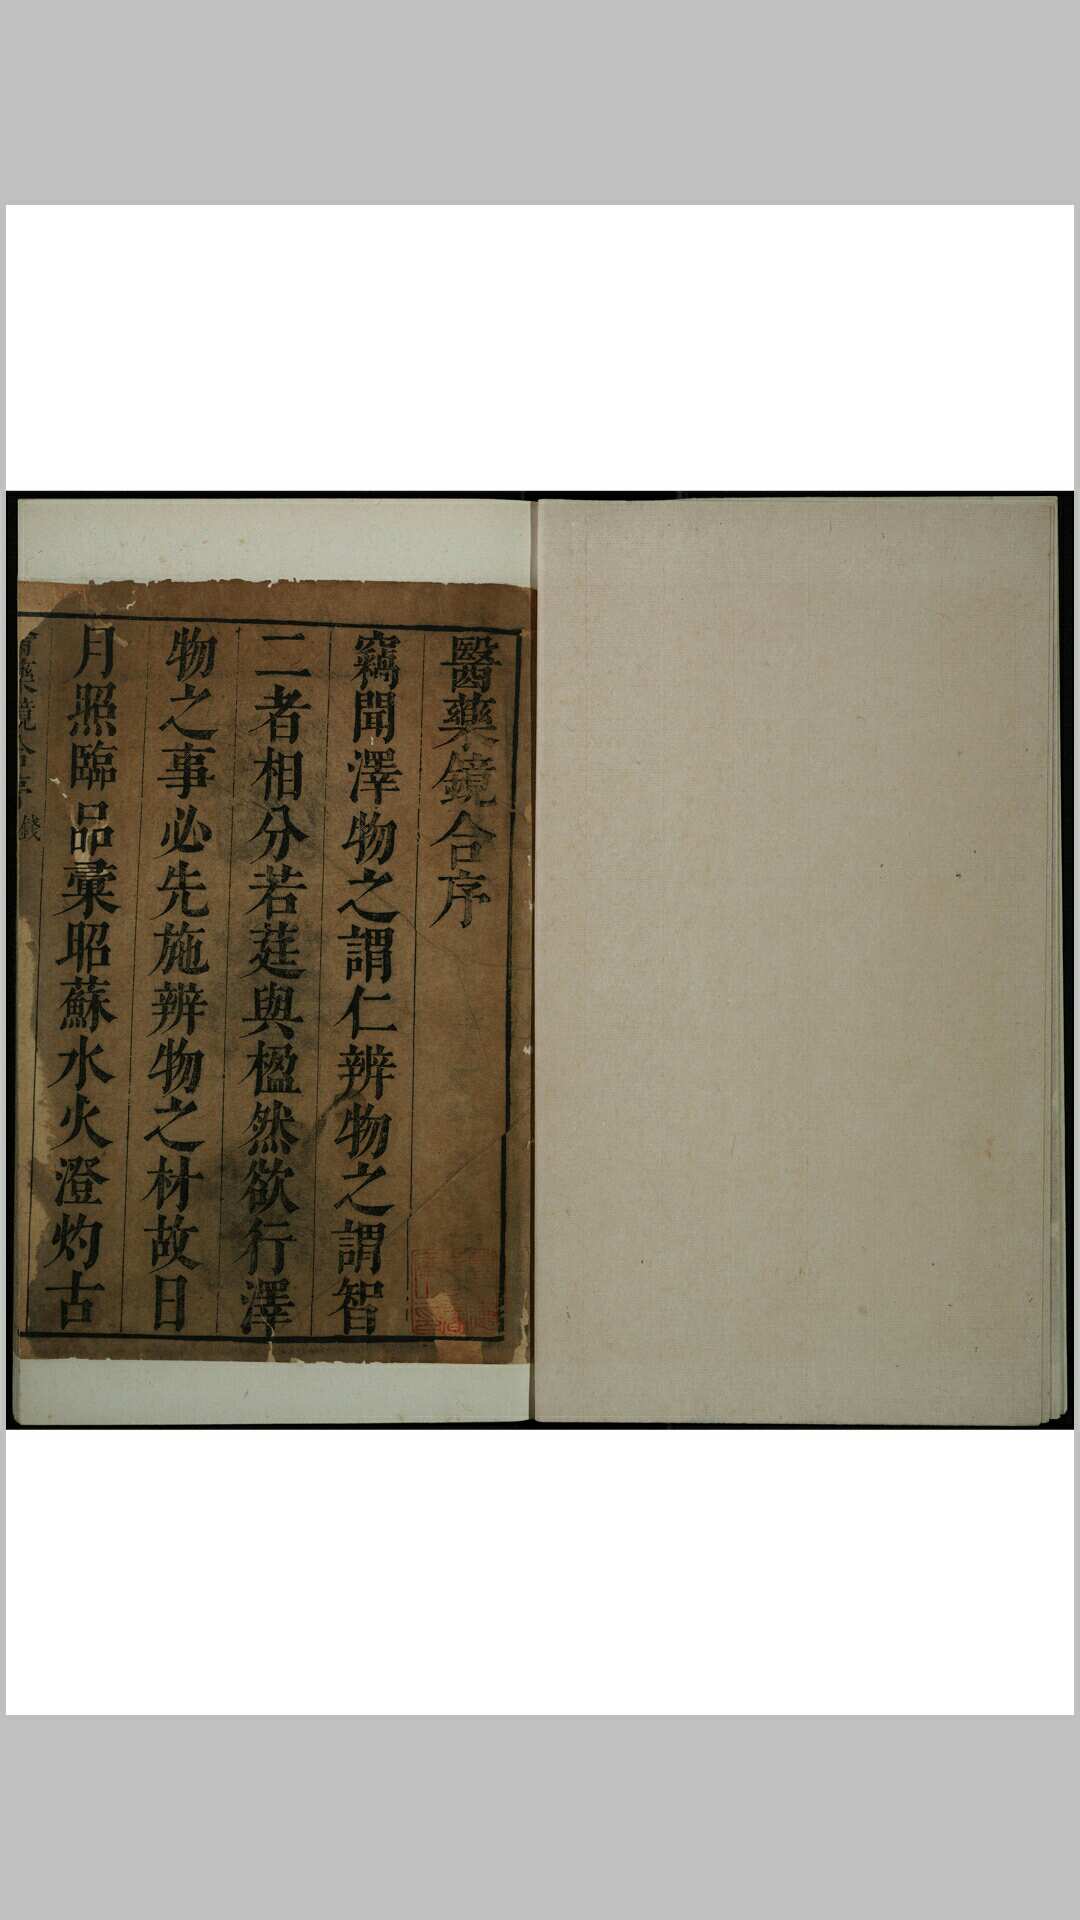 醫藥鏡合序
竊聞澤物之謂仁辨物之謂智
二者相分若莛與楹然欲行澤
物之事必先施辨物之材故日
月照臨品彙昭蘇水火澄灼古
藥鏡合序